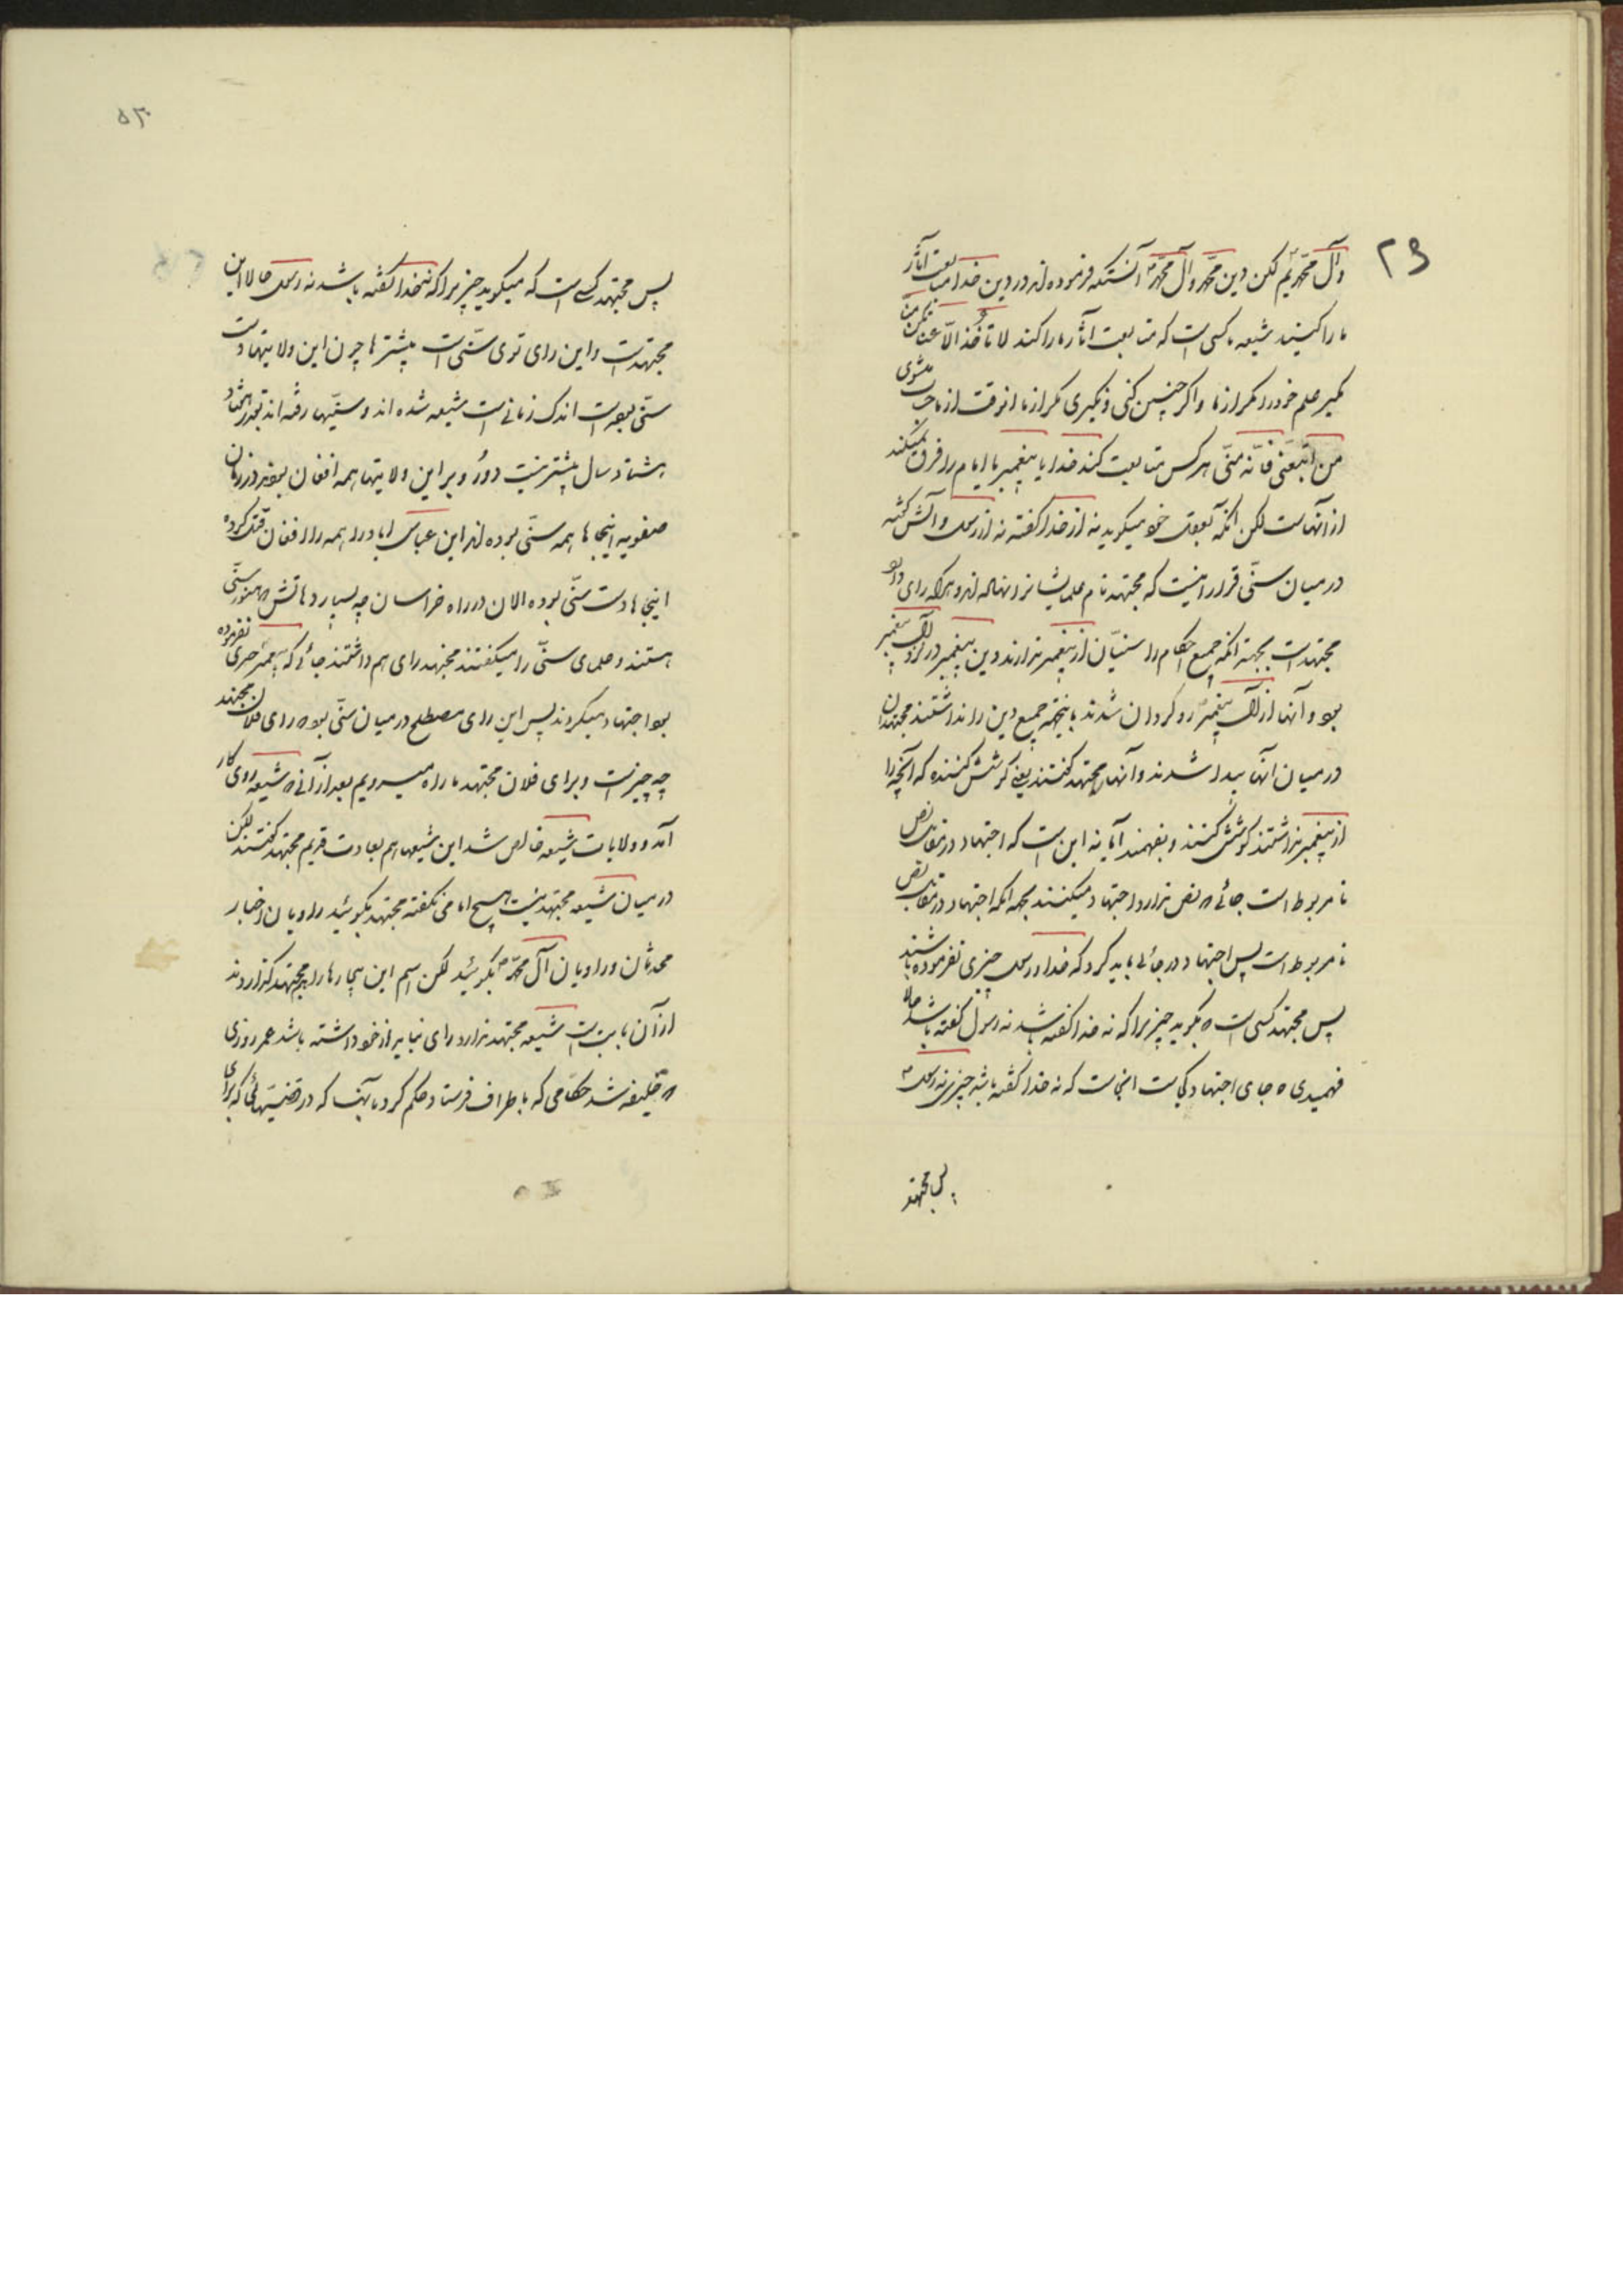 ۲۹
وآل محمدیم لکن دین محمد وآل محمد آنستکه فرموده اند در دین خدا متابعت آثار
ما را کنید شیعه ما کسی است که متابعت آثار ما را کند لا تأخذ الّا عنّا تکن منّا
مگیر علم خود را مگر از ما و اگر چنین کنی و نگیری مگر از ما انوقت از ما میشوی
من اتّبعنی فانّه منّی هرکس متابعت کند خدا یا پیغمبر یا امام را
از آنهاست لکن انکه بعقل خود میگوید نه از خدا گفته نه از رسول
در میان سنّی قرار اینست که مجتهد نام علمایشان نهاده اند و هرکه رای دارد
مجتهد است بجهة انکه جمیع احکام را سنیّان از پیغمبر ندارند دین پیغمبر در نزد آل پیغمبر
بود و آنها از آل پیغمبر رو گردان شدند باینجهة جمیع دین را نداشتند مجتهدان
در میان آنها پیدا شدند و آنها را مجتهد گفتند یعنی کوشش کننده که آنچه را
از پیغمبر نداشتند کوشش کنند و بفهمند آیا نه این است که اجتهاد در مقابل نص
نامربوط است جائی که نص ندارد اجتهاد میکنند بجهة انکه اجتهاد در مقابل نص
نامربوط است پس اجتهاد در جائی باید کرد که خدا و رسول چیزی نفرموده باشند
پس مجتهد کسی است که بگوید چیزیرا که نه خدا گفته باشد نه رسول گفته باشد حالا
فهمیدی که جای اجتهاد کجاست اینجاست که نه خدا گفته باشد چیزی نه رسول
پس مجتهد
پس مجتهد کسی است که میگوید چیزیرا که نه خدا گفته باشد نه رسول حالا این
مجتهد است و این رای توی سنّی است پیشترها چون این ولایتها
سنّی بوده است اندک زمانی است شیعه شده اند و سنّیها رفته اند بقدر هفتاد
هشتاد سال پیشتر نیست دور و بر این ولایتها همه افغان بودند در زمان
صفویه اینجاها همه سنّی بوده اند این عباس اباد را همه را افغان قتل کرده
اینجا دست سنّی بوده الان در راه خراسان چه بسیار دهاتش که هنوز سنّی
هستند و علمای سنّی را میگفتند مجتهد رای هم داشتند جائی که پیغمبر حرفی نفرموده
بود اجتهاد میکردند پس این رای مصطلح در میان سنّی بود که رای فلان مجتهد
چه چیز است و برای فلان مجتهد ما راه میرویم بعد از آنی که شیعه روی کار
آمد و ولایات شیعه خالص شد این شیعها هم بعادت قدیم مجتهد گفتند لکن
در میان شیعه مجتهد نیست هیچ امامی نگفته مجتهد بگوئید راویان اخبار
محدثان و راویان آل محمّد بگوئید لکن اسم این بیچارها را مجتهد گذاردند
از آن بابت است شیعه مجتهد ندارد رای نباید از خود داشته باشد عمر روزی
که خلیفه شد حکّامی که باطراف فرستاد حکم کرد بآنها که در قضیّهائی که برای